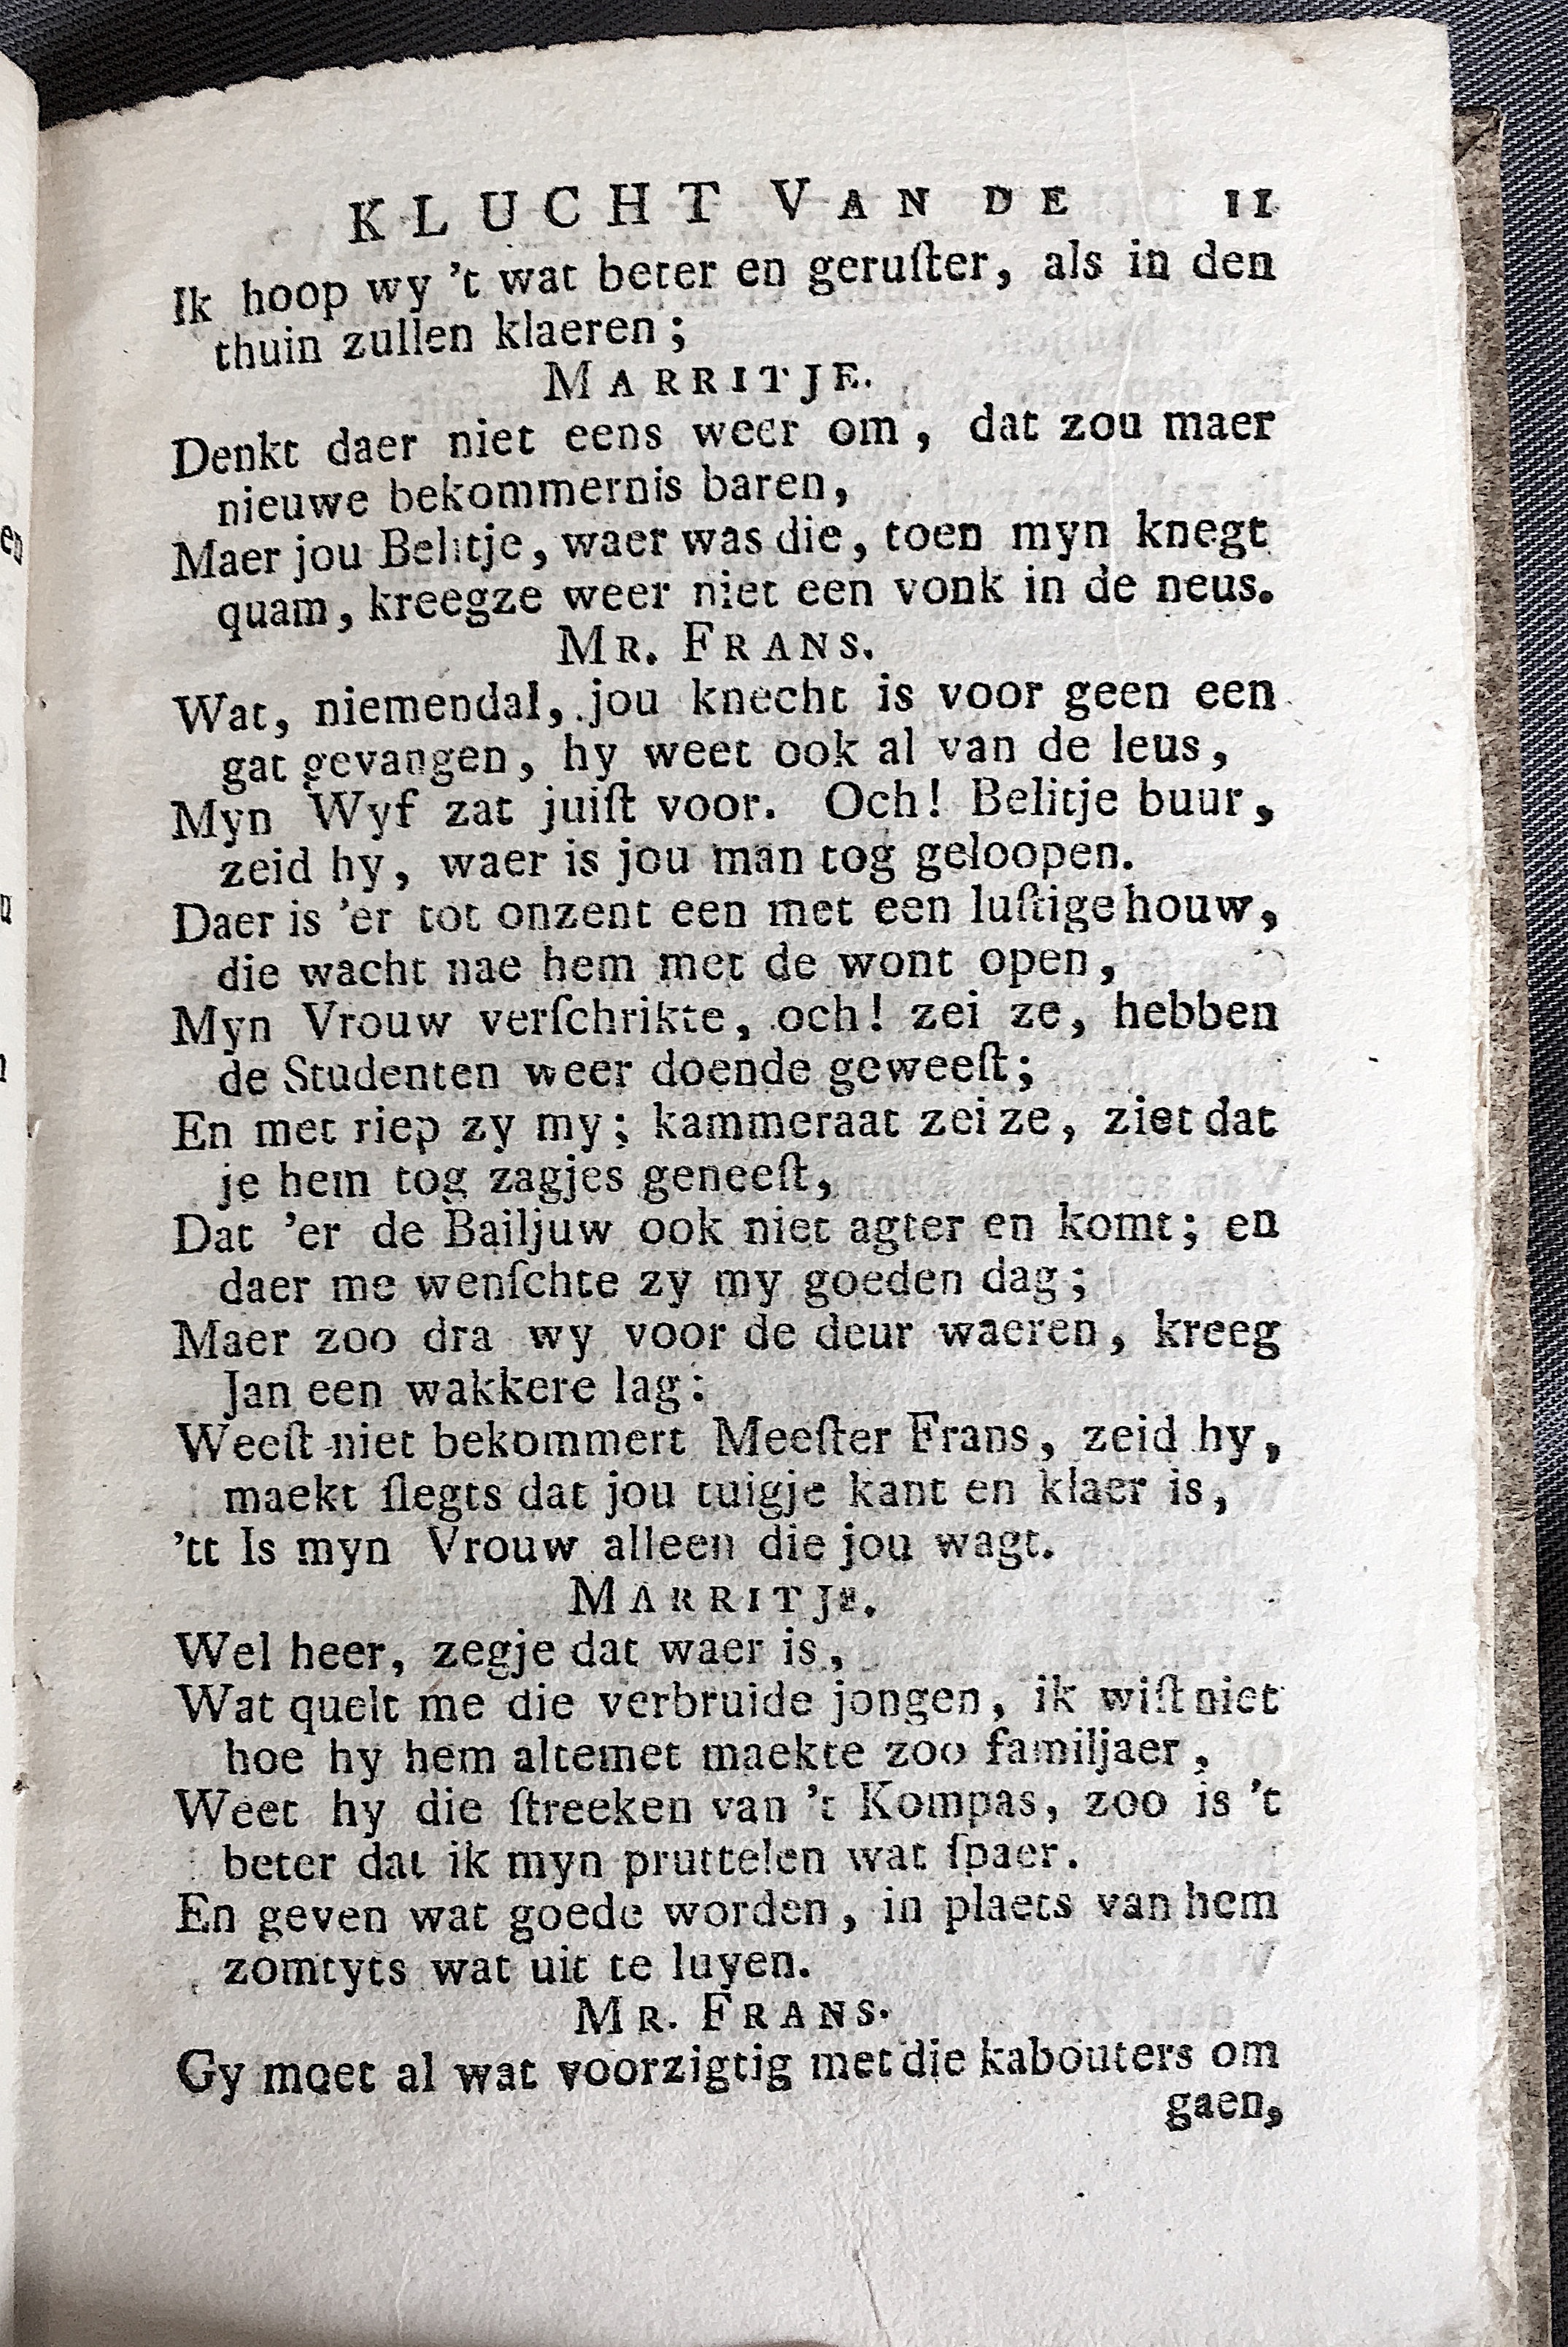 KLUCHT VAN DE 11
Ik hoop wy 't wat beter en geruſter, als in den
thuin zullen klaeren;
MARRITJE.
Denkt daer niet eens weer om, dat zou maer
nieuwe bekommernis baren,
Maer jou Belitje, waer was die, toen myn knegt
quam, kreegze weer niet een vonk in de neus.
MR. FRANS.
Wat, niemendal, jou knecht is voor geen een
gat gevangen, hy weet ook al van de leus,
Myn Wyf zat juiſt voor. Och! Belitje buur,
zeid hy, waer is jou man tog geloopen.
Daer is 'er tot onzent een met een luſtige houw,
die wacht nae hem met de wont open,
Myn Vrouw verſchrikte, och! zei ze, hebben
de Studenten weer doende geweeſt;
En met riep zy my; kammeraat zei ze, ziet dat
je hem tog zagjes geneeſt,
Dat 'er de Bailjuw ook niet agter en komt; en
daer me wenſchte zy my goeden dag;
Maer zoo dra wy voor de deur waeren, kreeg
Jan een wakkere lag:
Weeſt niet bekommert Meeſter Frans, zeid hy,
maekt ſlegts dat jou tuigje kant en klaer is,
'tt Is myn Vrouw alleen die jou wagt.
MARRITJE.
Wel heer, zegje dat waer is,
Wat quelt me die verbruide jongen, ik wiſt niet
hoe hy hem altemet maekte zoo familjaer,
Weet hy die ſtreeken van 't Kompas, zoo is 't
beter dat ik myn pruttelen wat ſpaer.
En geven wat goede worden, in plaets van hem
zomtyts wat uit te luyen.
MR. FRANS.
Gy moet al wat voorzigtig met die kabouters om
gaen,